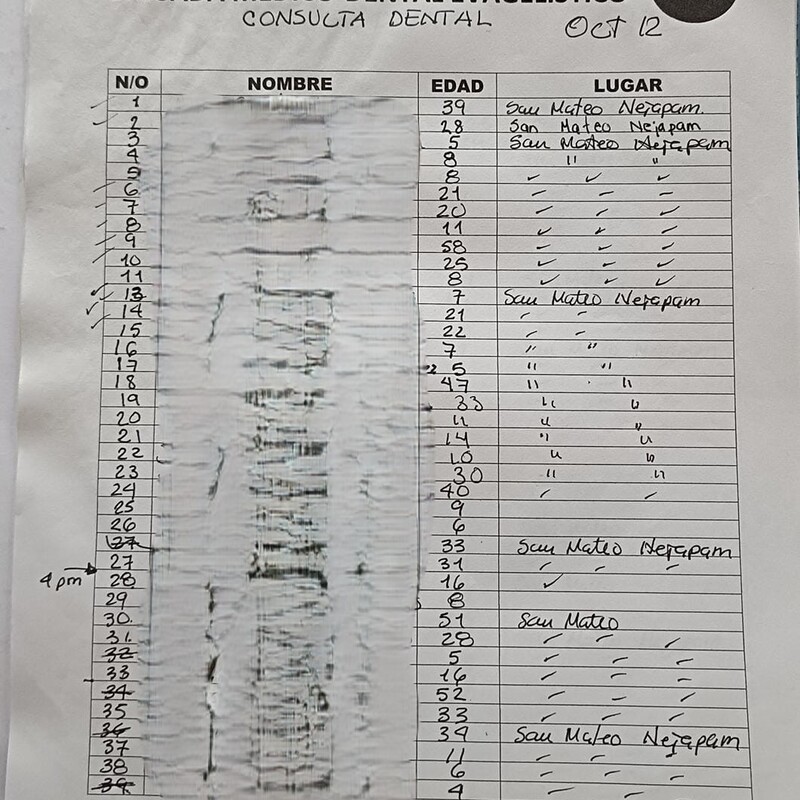 CONSULTA DENTAL Oct 12
N/O NOMBRE EDAD LUGAR
1 39 San Mateo Nejapam.
2 28 San Mateo Nejapam
3 5 San Mateo Nejapam
4 8 " "
5 8
6 21
7 20
8 11
9 58
10 25
11 8
13 7 San Mateo Nejapam
14 21
15 22
16 7 " "
17 5 " "
18 47 " "
19 33 " "
20 11 " "
21 14 " "
22 10 " "
23 30 " "
24 40
25 9
26 6
33 San Mateo Nejapam
27 31
4 pm 28 16
29 8
30. 51 San Mateo
31. 28
32 5
33 16
34 52
35 33
36 39 San Mateo Nejapam
37 11
38 6
39 4